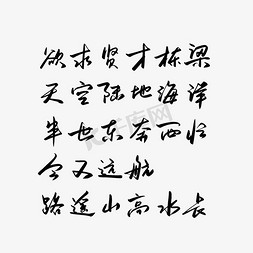 欲求贤才栋梁
天空陆地海洋
半世东奔西忙
今又远航
路遥山高水长